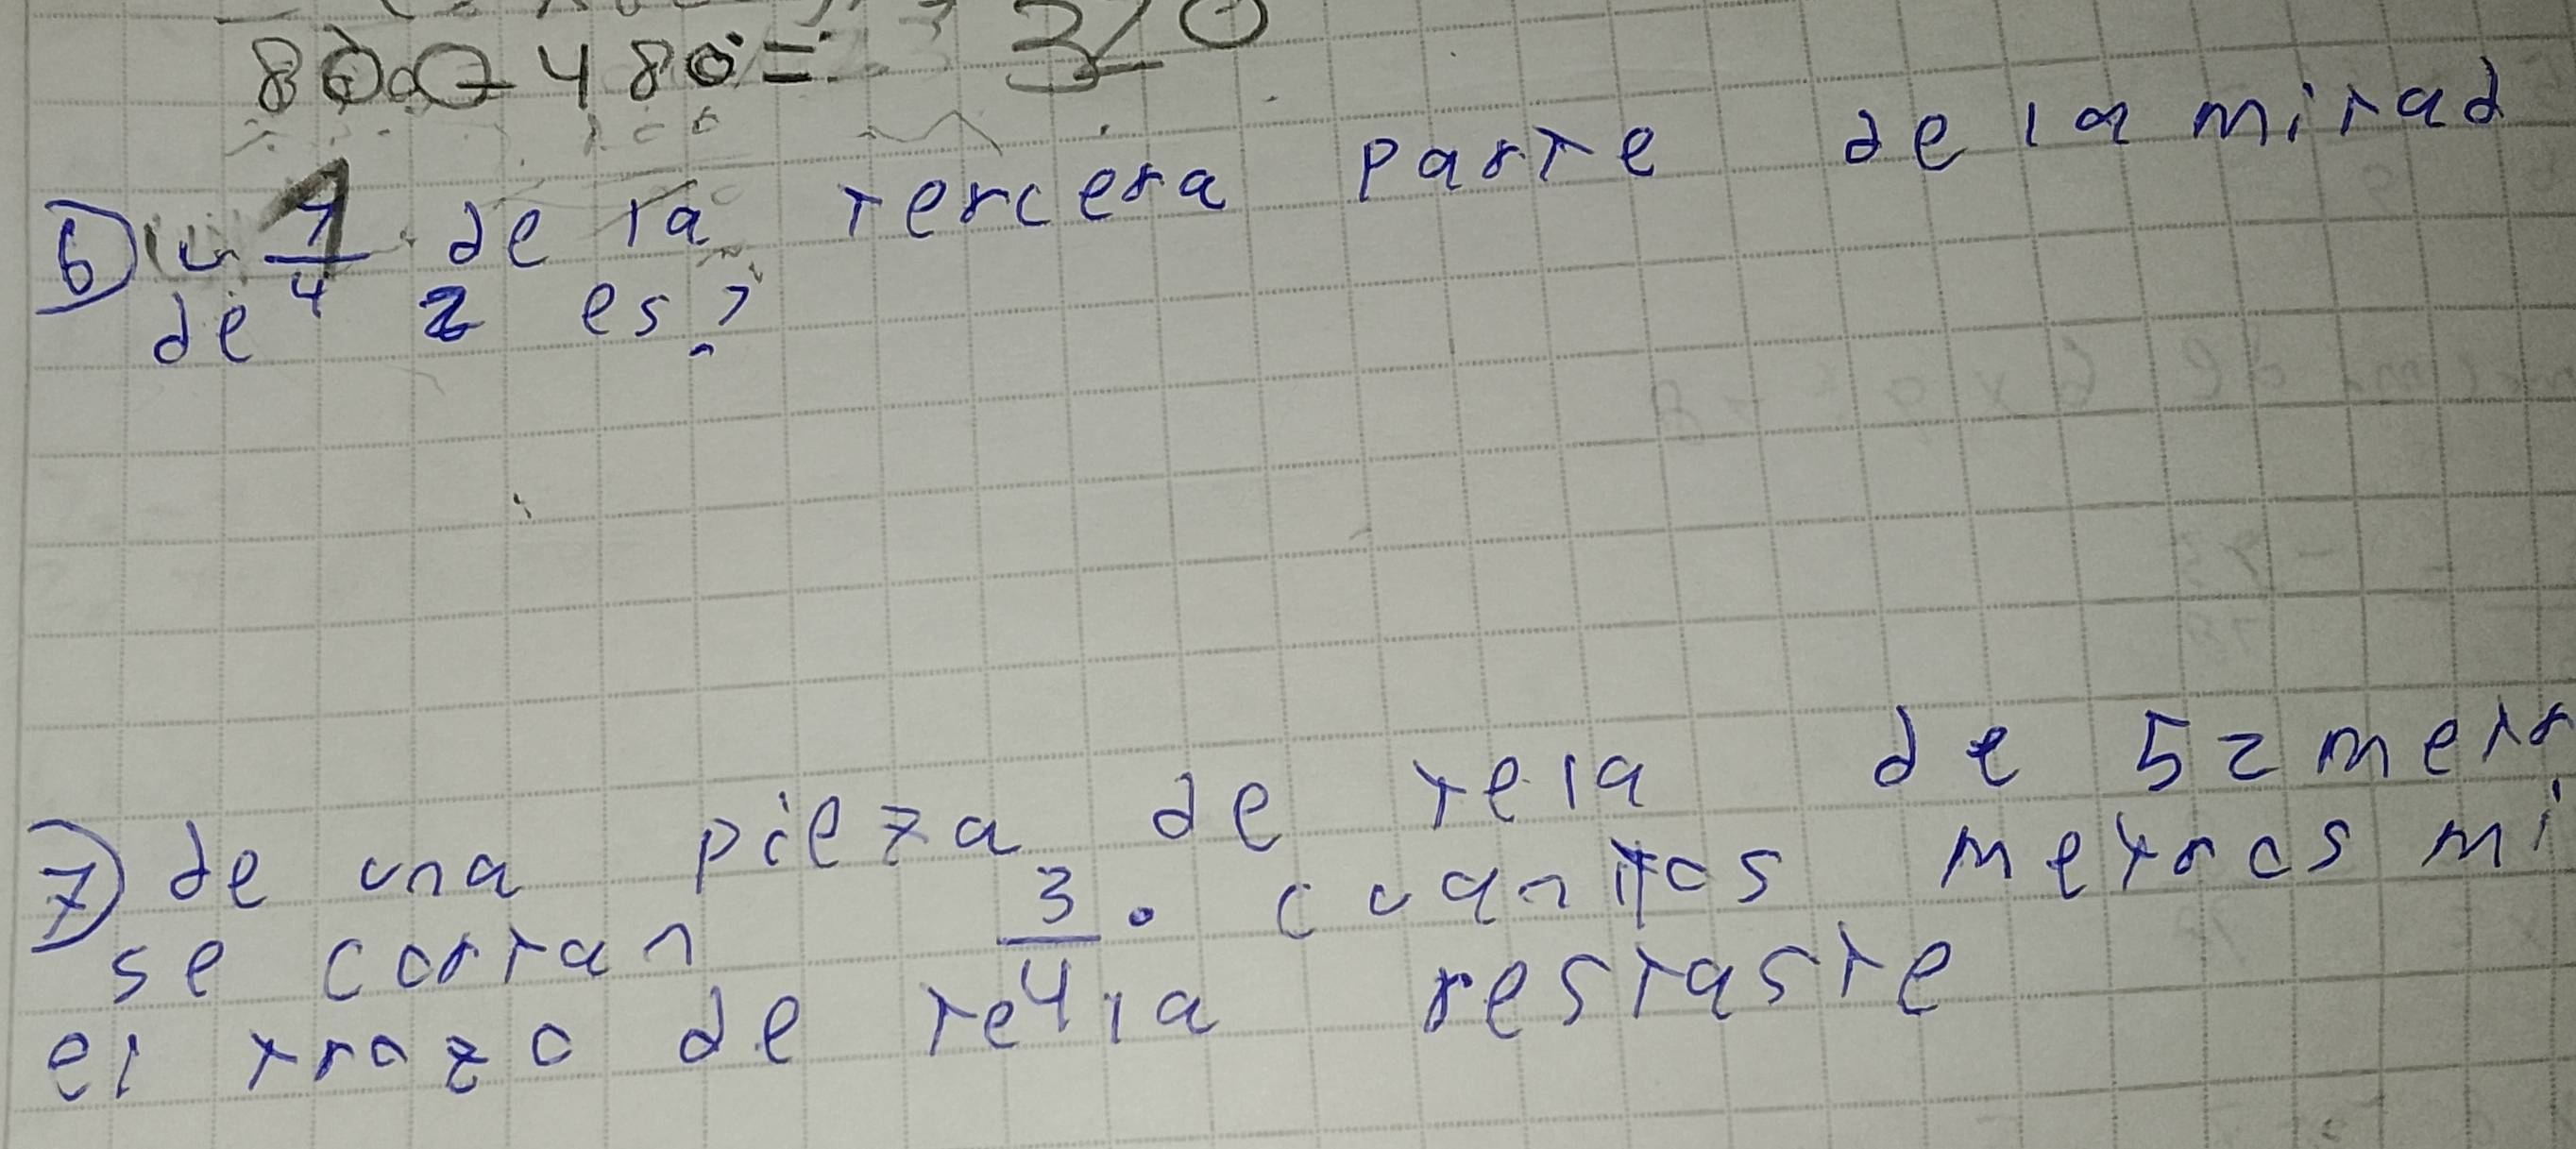 800-480= 320
6) u 1/4 de la tercera parte de la mitad
de 2 es?
7) de una pieza de tela de 52 metr
se cortan 3/4. cuantos metros mi
el trozo de tela restaste